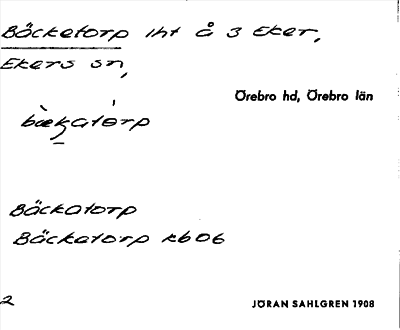 Bäcketorp iht å 3 Eker,
Ekers sn,
Örebro hd, Örebro län
Bäckatorp
Bäckatorp rb06
2
JÖRAN SAHLGREN 1908